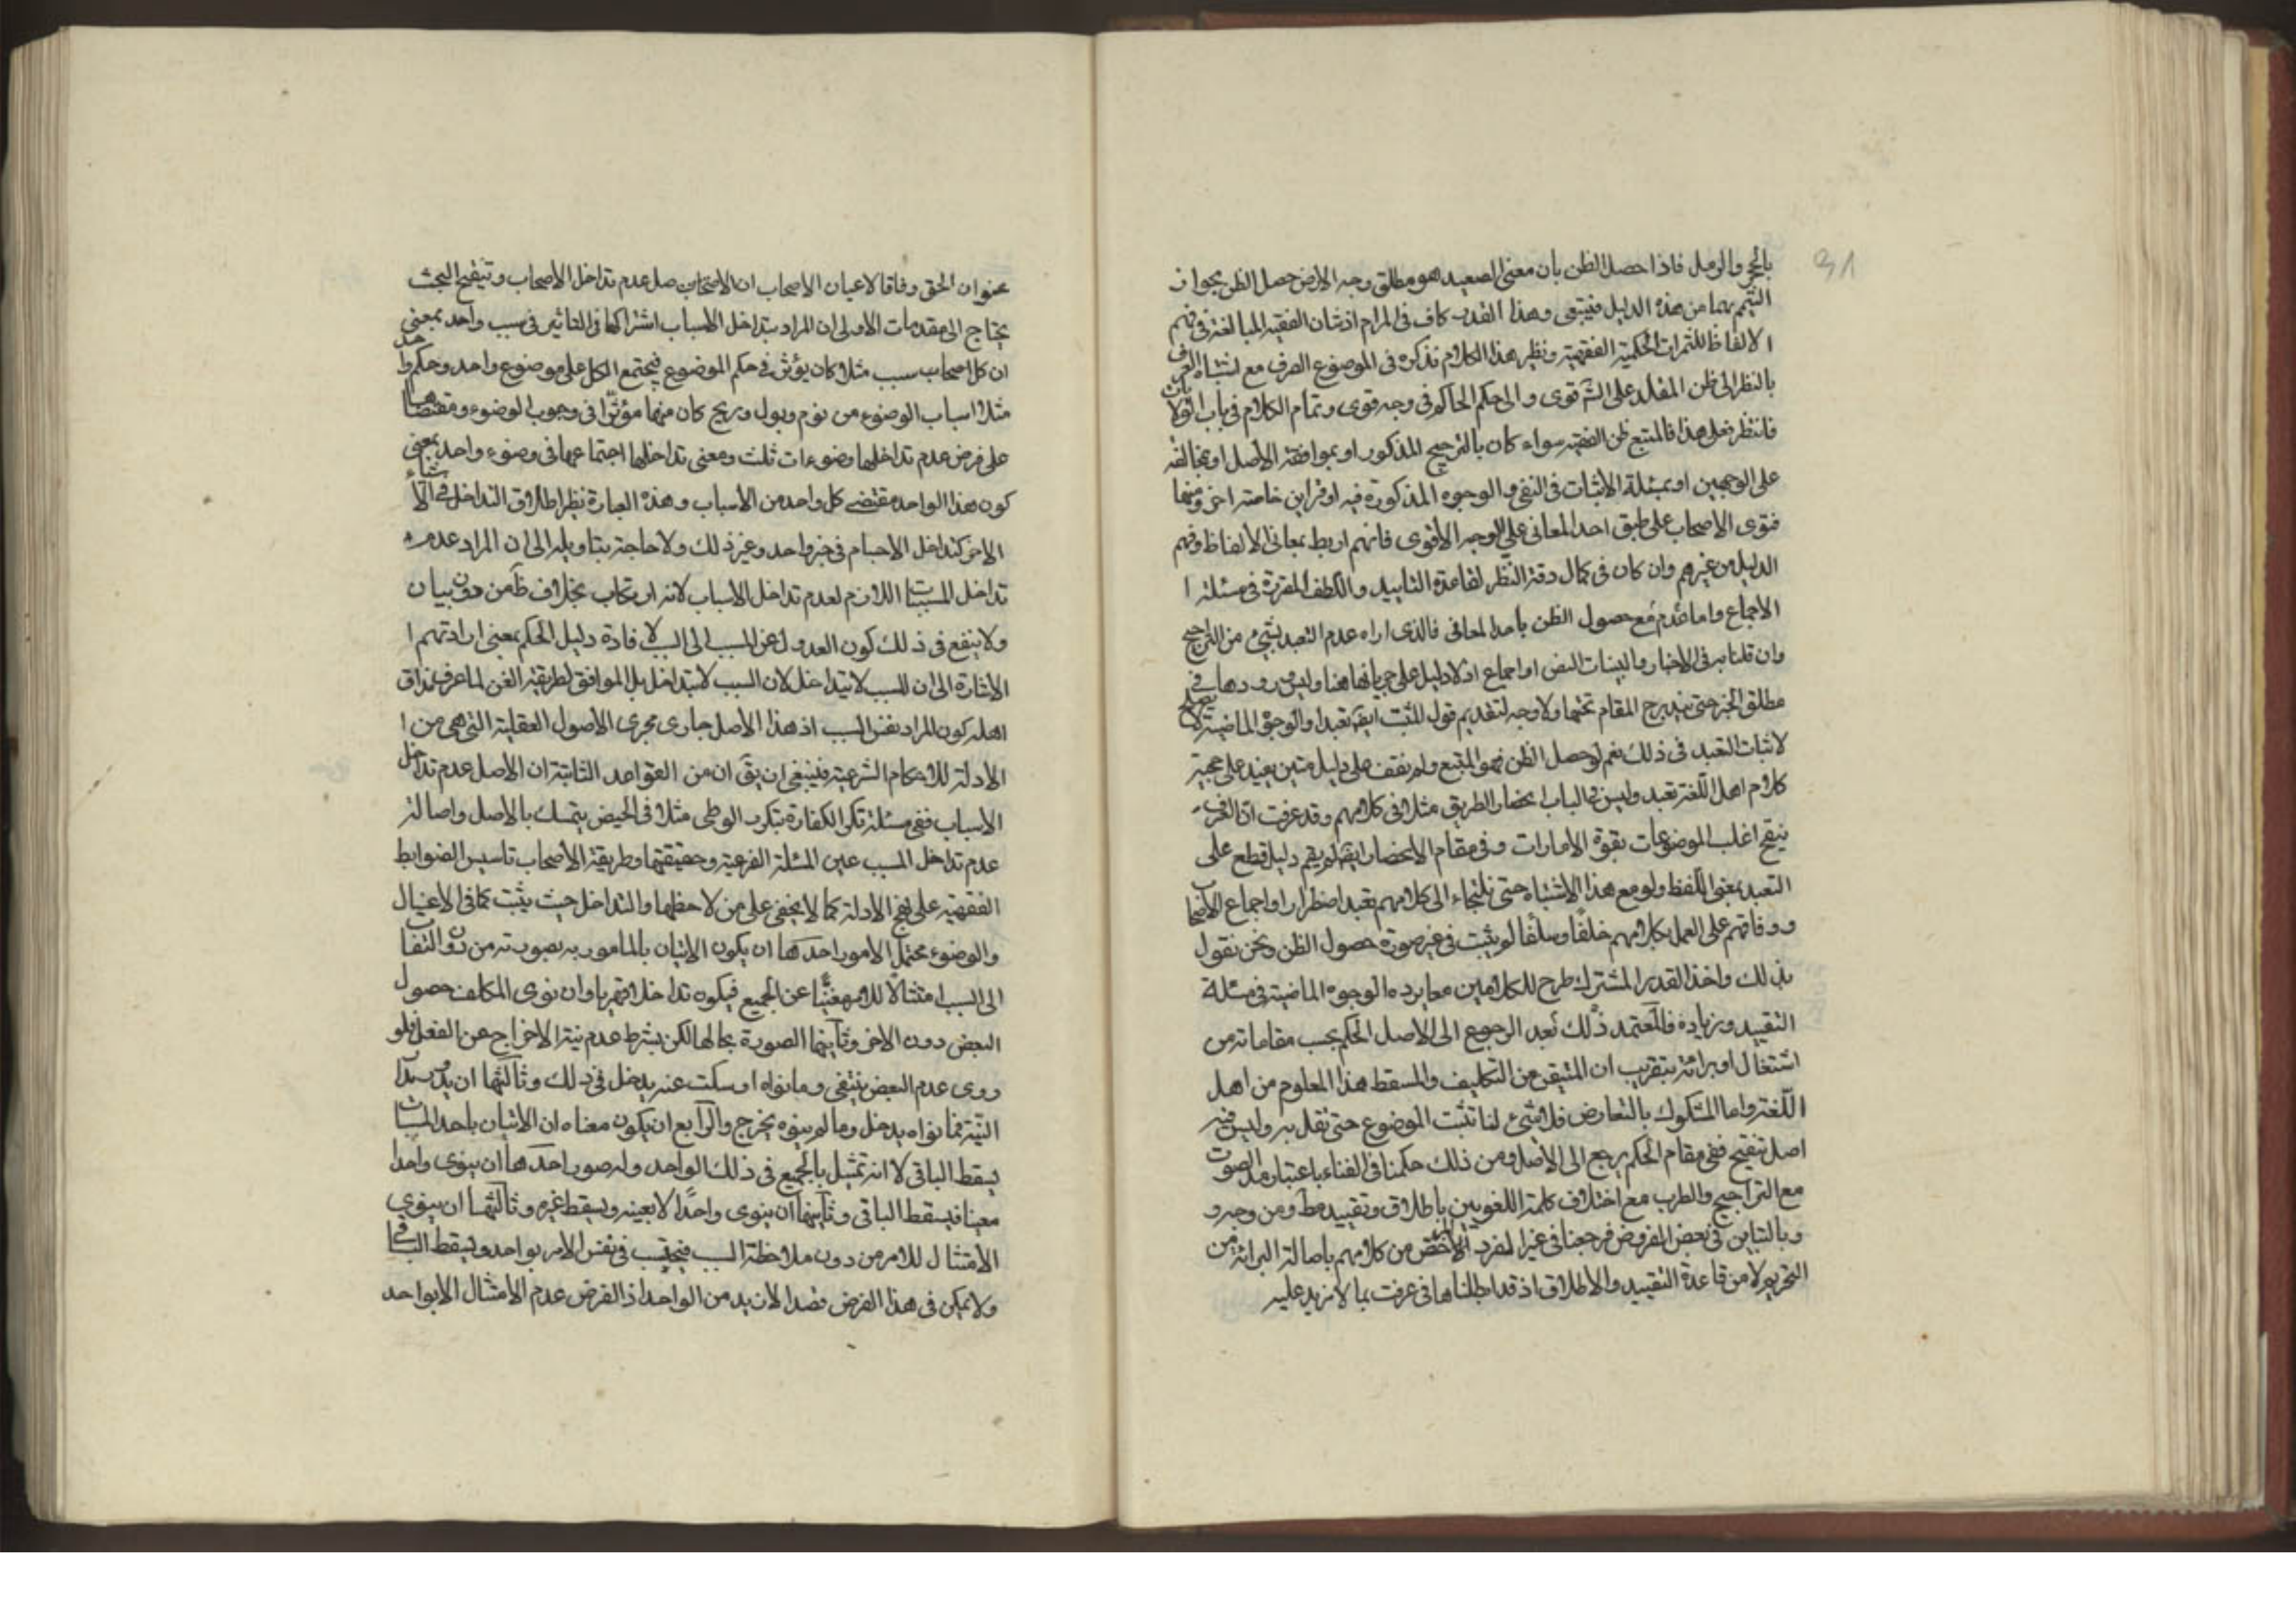 ٣١
بالحجر والرمل فاذا حصل الظن بان معنى الصعيد هو مطلق وجه الارض حصل الظن بجواز
التيمم بهما من هذه الدليل فيتبقى وهذا القدر كاف في المرام اذ شان الفقيه المبالغة في فهم
الالفاظ للثمرات الحكمية الفقهية ونظير هذا الكلام نذكره في الموضوع الصرف مع اشتباه العرف
بالنظر الى ظن المقلد على الفتوى والى حكم الحاكم في وجه قوى وتمام الكلام في باب
فانتظر فعلى هذا فالمتبع ظن الفقيه سواء كان بالترجيح المذكور او بموافقة الاصل او مخالفته
على الوجهين او بمسئلة الاثبات في النفي والوجوه المذكورة فيه او قراين خاصة اخر ومنها
فتوى الاصحاب على طبق احد المعاني على الوجه الاقوى فانهم اربط بمعاني الالفاظ وفهم
الدليل من غيرهم وان كان في كمال دقة النظر لقاعدة التاييد واللطف المقررة في مسئلة ا
الاجماع واما مع عدم حصول الظن باحد المعاني فالذى اراه عدم التعبد بشئ من التراجيح
وان قلنا به في الاخبار والبينات النص او اجماع اذ لا دليل على جريانها هنا وليس ورودها في
مطلق الخبر حتى يندرج المقام تحتها ولا وجه لتقديم قول المثبت ايض تعبدا والوجوه الماضية لا تصلح
لاثبات التعبد في ذلك نعم لو حصل الظن فهو المتبع ولم نقف على دليل متين يفيد على حجية
كلام اهل اللغة تعبد وليس في الباب انحصار الطريق مثلا في كلامهم وقد عرفت ان العرف
ينقح اغلب الموضوعات بقوة الامارات وفي مقام الانحصار ايض لم يقم دليل قطع على
التعبد بمعنى اللفظ ولو مع هذا الاشتباه حتى نلتجاء الى كلامهم تعبد اضطرارا واجماع الاصحاب
ووفاقهم على العمل بكلامهم خلفا وسلفا لم يثبت في غير صورة حصول الظن ونحن نقول
بذلك واخذ القدر المشترك طرح للكلامين معا يرده الوجوه الماضية في مسئلة
التقييد وزيادة فالمعتمد ذلك بعد الرجوع الى الاصل الحكم بحسب مقاماته من
اشتغال او برائة بتقريب ان المتيقن من التكليف والمسقط هذا المعلوم من اهل
اللغة واما المشكوك بالتعارض فلا شئ لنا تثبت الموضوع حتى نقل به وليس فيه
اصل تنقيح ففي مقام الحكم يرجع الى الاصل ومن ذلك حكمنا في الغناء باعتبار مد الصوت
مع التراجيح والطرب مع اختلاف كلمة اللغويين باطلاق وتقييد مط ومن وجه و
وبالتباين في بعض الفروض فرجعنا في غير الفرد الاخص من كلامهم باصالة البرائة من
التحريم لا من قاعدة التقييد والاطلاق اذ قد ابطلناها في عرفت بما لا نزيد عليه
عنوان الحق وفاقا لاعيان الاصحاب ان الاصل عدم تداخل الاصحاب وتنقيح البحث
يحتاج الى مقدمات الاولى ان المراد بتداخل الاسباب اشتراكها في التاثير في سبب واحد بمعنى
ان كل اصحاب سبب مثلا كان يؤثر في حكم الموضوع فيجتمع الكل على موضوع واحد وحكم واحد
مثلا اسباب الوضوء من نوم وبول وريح كان منها مؤثرا في وجوب الوضوء ومقتضاها
على فرض عدم تداخلها وضوءات ثلث ومعنى تداخلها اجتماعها في وضوء واحد بمعنى
كون هذا الواحد مقتضى كل واحد من الاسباب وهذه العبارة نظير اطلاق التداخل في الاشياء
الاخر كتداخل الاجسام في حيز واحد وغير ذلك ولا حاجة بتاويله الى ان المراد عدم
تداخل المسببات اللازم لعدم تداخل الاسباب لانه ارتكاب بخلاف ظ من دون بيان
ولا ينفع في ذلك كون العدول عن المسبب الى السبب لافادة دليل الحكم بمعنى ارادتهم ا
الاشارة الى ان المسبب لا يتداخل لان السبب لا يتداخل بل الموافق لطريقة الفن لما عرف مذاق
اهله كون المراد نفس السبب اذ هذا الاصل جارى مجرى الاصول العقلية التي هي من ا
الادلة للاحكام الشرعية فينبغي ان يق ان من القواعد الثابتة ان الاصل عدم تداخل
الاسباب ففي مسئلة تكرر الكفارة بتكرر الوطى مثلا في الحيض يتمسك بالاصل واصالة
عدم تداخل المسبب عين المسئلة الفرعية وحقيقتها وطريقة الاصحاب تاسيس الضوابط
الفقهية على نهج الادلة كما لا يخفى على من لاحظها والتداخل حيث يثبت كما في الاغسال
والوضوء محتمل الامور احدها ان يكون الاتيان بالمامور به بصورته من دون التفات
الى السبب امتثالا للامر مغنيا عن الجميع فيكون تداخلا قهريا وان نوى المكلف حصول
البعض دون الاخر وثانيها الصورة بحالها لكن بشرط عدم نية الاخراج عن الفعل فلو
روى عدم البعض ينتفى وما نواه او سكت عنه يدخل في ذلك وثالثها ان يدور مدار
النية فما نواه يدخل وما لم ينوه يخرج والرابع ان يكون معناه ان الاتيان باحد المسببات
يسقط الباقي لا انه تمثيل بالجميع في ذلك الواحد وله صور احدها ان ينوى واحدا
معينا فيسقط الباقي وثانيها ان ينوى واحدا لا بعينه ويسقط غيره وثالثها ان ينوى
الامتثال للامر من دون ملاحظة السبب فيحتسب في نفس الامر بواحد ويسقط الباقي
ولا يمكن في هذا الفرض قصد الازيد من الواحد اذ الفرض عدم الامتثال الا بواحد